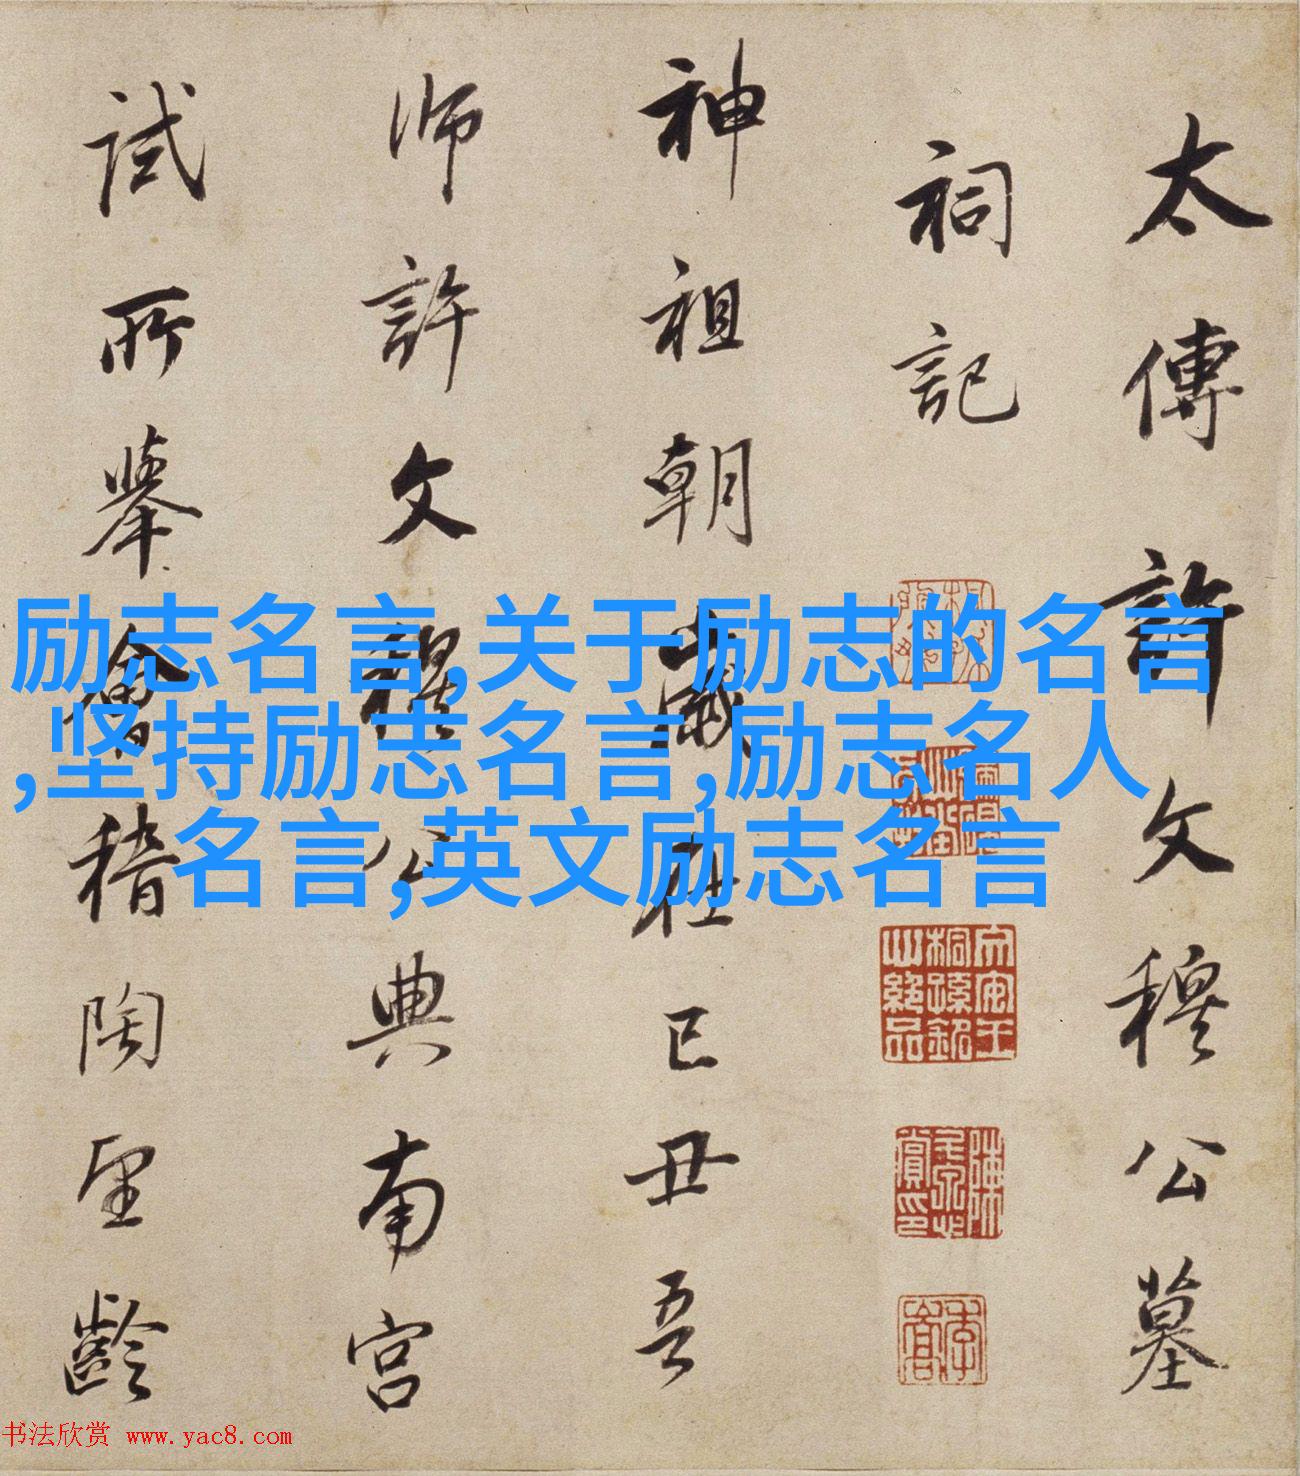 太傅許文穆公墓
祠記
神祖朝歲在己丑吾
師許文穆公典南宮
試所舉會稽陶望齡
励志名言,关于励志的名言
,坚持励志名言,励志名人
名言,英文励志名言
书法欣赏 www.yac8.com